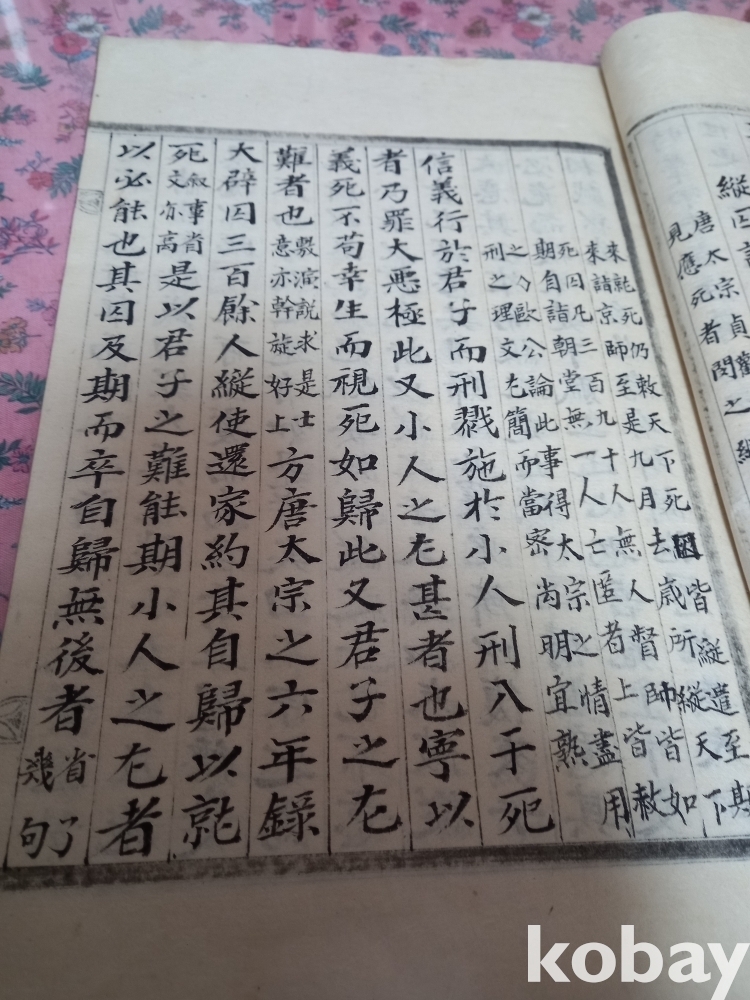 縱囚
唐太宗貞觀
見應死者閔之縱
來就死仍敕天下死囚皆縱遣至期
來詣京師至是九月去歲所縱天下
死囚凡三百九十人無人督帥皆如
期自詣朝堂無一人亡匿者上皆赦
之〇歐公論此事得太宗之情盡用
刑之理文尤簡而當密尚明宜熟
信義行於君子而刑戮施於小人刑入于死
者乃罪大惡極此又小人之尤甚者也寧以
義死不苟幸生而視死如歸此又君子之尤
難者也敷演說求是士意亦幹旋好上方唐太宗之六年錄
大辟囚三百餘人縱使還家約其自歸以就
死敘事省文亦高是以君子之難能期小人之尤者
以必能也其囚及期而卒自歸無後者省了幾句
kobay